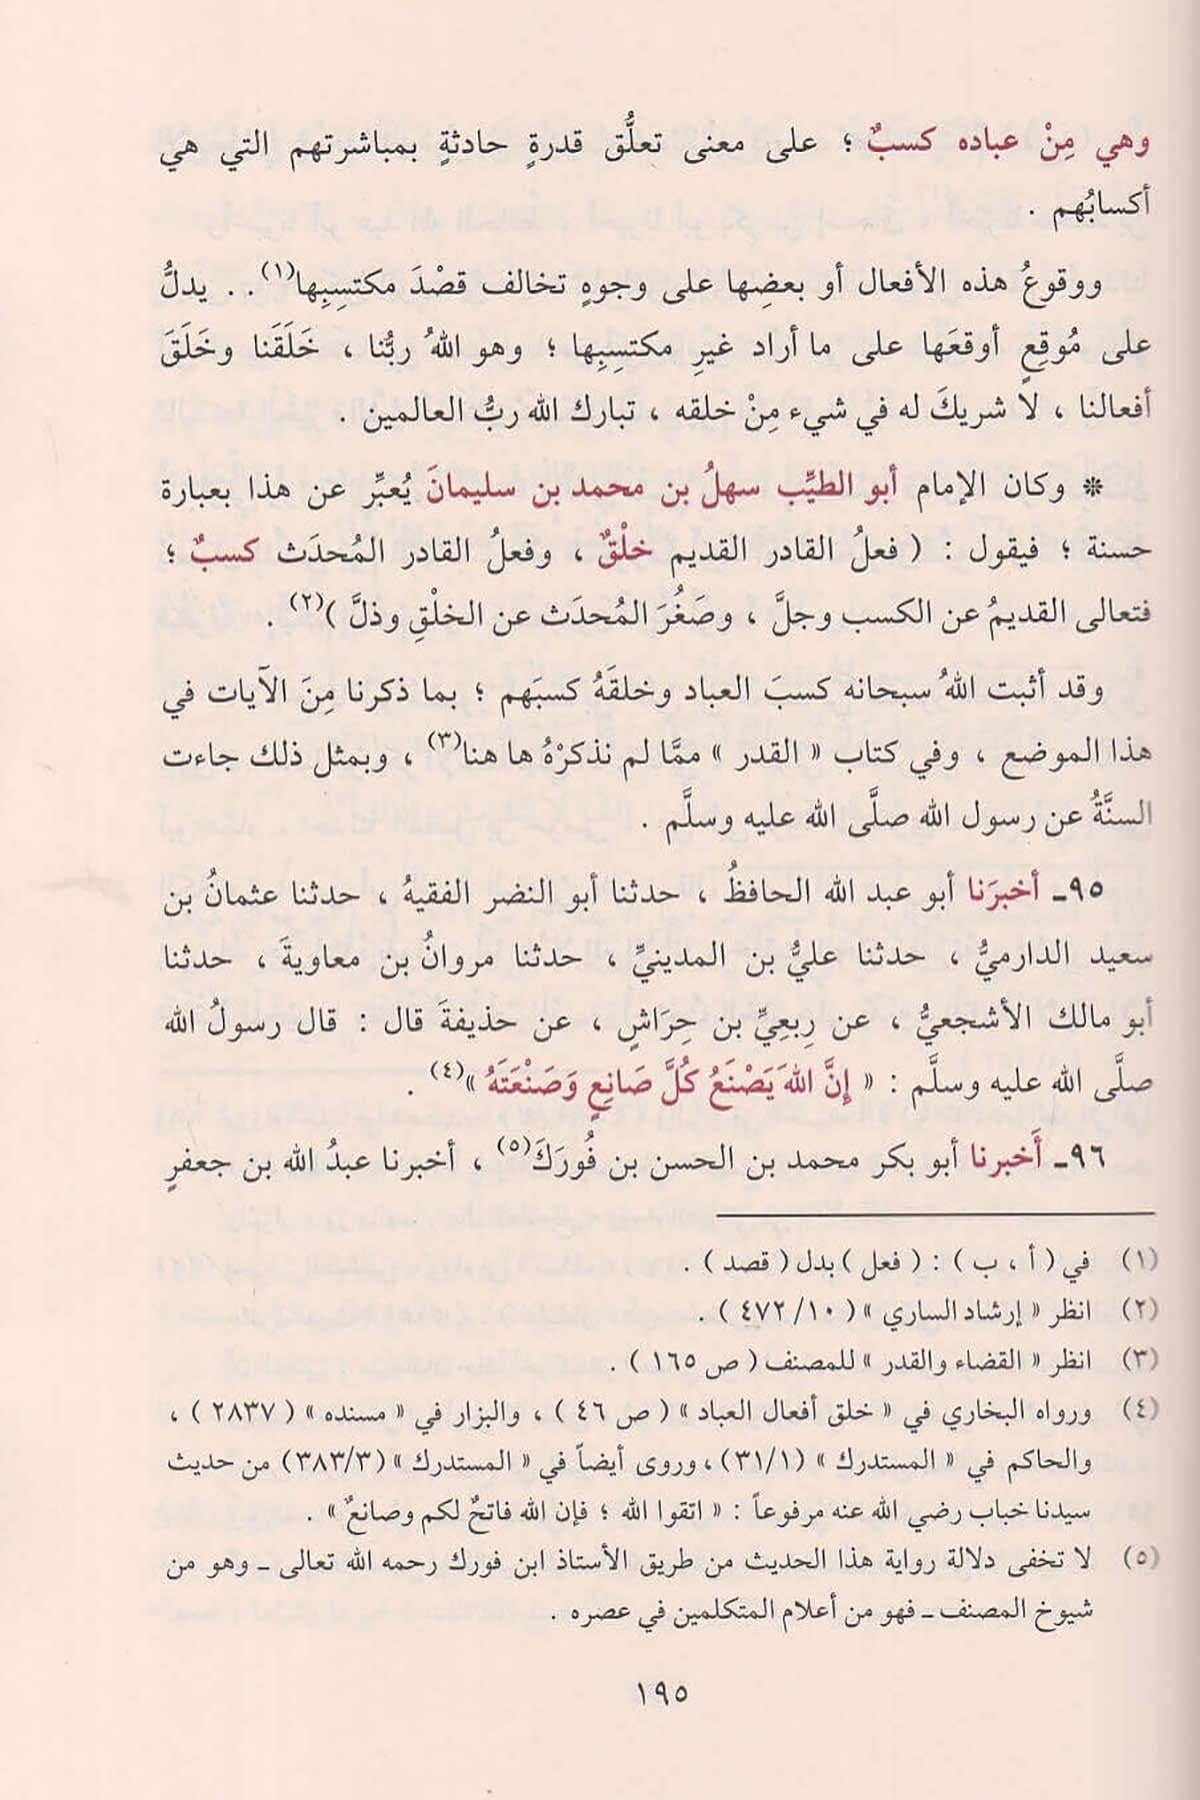 وهي مِنْ عباده كسبٌ ؛ على معنى تعلُّق قدرةٍ حادثةٍ بمباشرتهم التي هي
أكسابُهم .
ووقوعُ هذه الأفعال أو بعضِها على وجوهٍ تخالف قصْدَ مكتسِبِها(١) . . يدلُّ
على مُوقِعٍ أوقعَها على ما أراد غيرِ مكتسِبِها ؛ وهو اللهُ ربُّنا ، خَلَقَنا وخَلَقَ
أفعالنا ، لا شريكَ له في شيء مِنْ خلقه ، تبارك الله ربُّ العالمين .
* وكان الإمام أبو الطيِّب سهلُ بن محمد بن سليمانَ يُعبِّر عن هذا بعبارة
حسنة ؛ فيقول : ( فعلُ القادر القديم خلْقٌ ، وفعلُ القادر المُحدَث كسبٌ ؛
فتعالى القديمُ عن الكسب وجلَّ ، وصَغُرَ المُحدَث عن الخلْقِ وذلَّ )(٢) .
وقد أثبت اللهُ سبحانه كسبَ العباد وخلقَهُ كسبَهم ؛ بما ذكرنا مِنَ الآيات في
هذا الموضع ، وفي كتاب « القدر » ممَّا لم نذكرْهُ ها هنا(٣) ، وبمثل ذلك جاءت
السنَّةُ عن رسول الله صلَّى الله عليه وسلَّم .
٩٥ـ أخبرَنا أبو عبد الله الحافظُ ، حدثنا أبو النضر الفقيهُ ، حدثنا عثمانُ بن
سعيد الدارميُّ ، حدثنا عليُّ بن المدينيِّ ، حدثنا مروانُ بن معاويةَ ، حدثنا
أبو مالك الأشجعيُّ ، عن رِبعِيِّ بن حِرَاشٍ ، عن حذيفةَ قال : قال رسولُ الله
صلَّى الله عليه وسلَّم : « إِنَّ اللهَ يَصْنَعُ كُلَّ صَانِعٍ وَصَنْعَتَهُ »(٤) .
٩٦ـ أَخبرنا أبو بكر محمد بن الحسن بن فُورَكَ(٥) ، أخبرنا عبدُ الله بن جعفرٍ
(١) في ( أ ، ب ) : ( فعل ) بدل ( قصد ) .
(٢) انظر « إرشاد الساري » ( ١٠/ ٤٧٢ ) .
(٣) انظر « القضاء والقدر » للمصنف ( ص ١٦٥ ) .
(٤) ورواه البخاري في « خلق أفعال العباد » ( ص ٤٦ ) ، والبزار في « مسنده » ( ٢٨٣٧ ) ،
والحاكم في « المستدرك » (٣١/١) ، وروى أيضاً في « المستدرك » (٣٨٣/٣) من حديث
سيدنا خباب رضي الله عنه مرفوعاً : « اتقوا الله ؛ فإن الله فاتحٌ لكم وصانعٌ » .
(٥) لا تخفى دلالة رواية هذا الحديث من طريق الأستاذ ابن فورك رحمه الله تعالى ـ وهو من
شيوخ المصنف ـ فهو من أعلام المتكلمين في عصره .
١٩٥